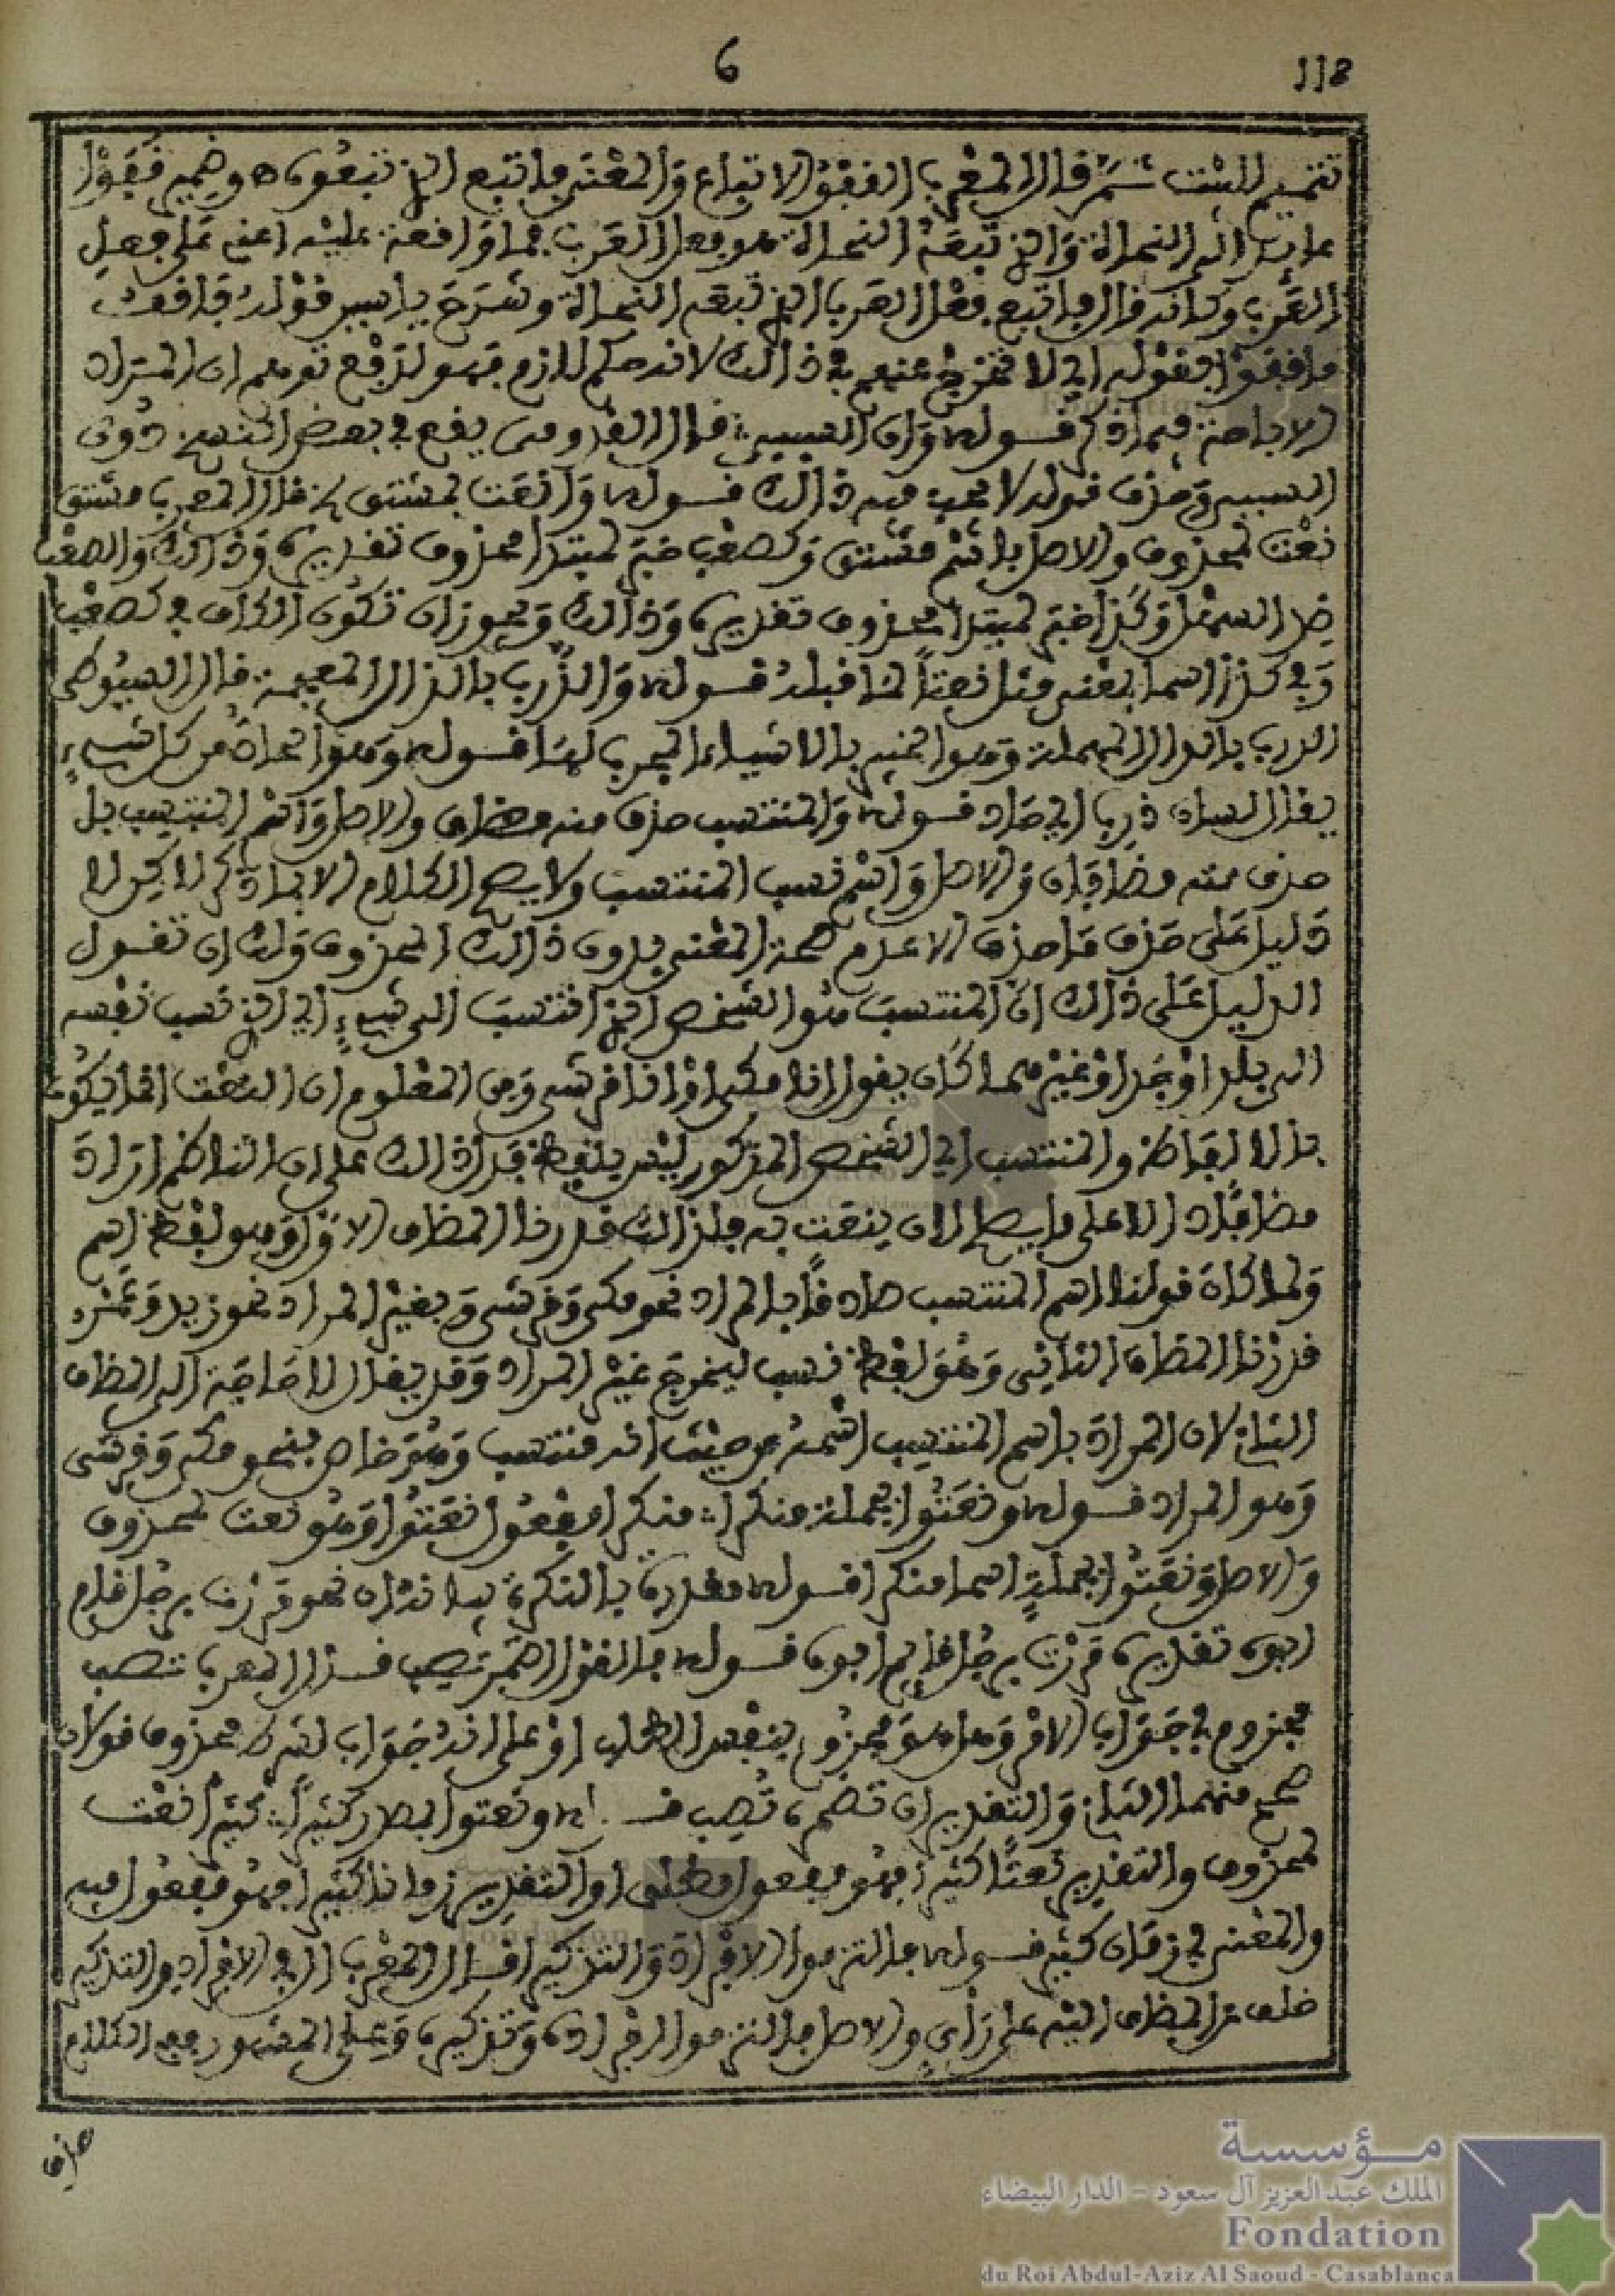 118 6
تتميم للبيت ثم قال المعرب القفو الاتباع والمعنى فاتبع الذي تبعوه وضمير قفوا
عائد الى النحاة والذي تبعه النحاة هو فعل العرب فما واقعة عليه اعني على فعل
العرب وكانه قال فاتبع فعل العرب الذي تبعه النحاة وشرح ياسين قوله فاقف
ما قفوا بقوله اي لا تخرج عنهم في ذالك لانه حكم لازم فهو لدفع توهم ان المراد
الاباحة فيما ذكر قوله وان السببي قال الفدومى يقع في بعض النسخ دون
السببي وحذف قوله لا يجب فيه ذالك قوله وانعت بمشتق قال المعرب مشتق
نعت لمحذوف والاصل باسم مشتق وكصعب خبر لمبتدا محذوف تقديره وذالك والصعب
ضد السهل وكذا خبر لمبتدا محذوف تقديره وذالك ويجوز ان تكون الكاف في كصعب
وفي كذا اسما بمعنى مثل نعتا لما قبله قوله والذرب بالذال المعجمة قال السيوطى
الدرب بالدال المهملة وهو الخبير بالاشياء المجرب لها قوله وهو الحاد من كل شيء
يقال لسان ذرب اي حاد قوله والمنتسب حذف منه مضاف والاصل واسم المنتسب بل
حذف منه مضافان والاصل واسم نسب المنتسب ولا يصح الكلام الا بما ذكر لاكن لا
دليل على حذف ما حذف الا عدم صحة المعنى بدون ذالك المحذوف ولك ان تقول
الدليل على ذالك ان المنتسب هو الشخص الذي انتسب الى شيء اي الذي نسب نفسه
الى بلد او جد او غيرهما كان يقول انا مكى او انا قرشى ومن المعلوم ان النعت انما يكون
بالالفاظ والمنتسب اي الشخص المذكور ليس بلفظ فدل ذالك على ان الناظم اراد
مضافا دالا على ما يصح ان ينعت به فلذالك قدرنا المضاف الاول وهو لفظ اسم
ولما كان قولنا اسم المنتسب صادقا بالمراد نحو مكى وقرشى وبغير المراد نحو زيد وعمرو
قدرنا المضاف الثاني وهو لفظ نسب ليخرج غير المراد وقد يقال لا حاجة الى المضاف
الثاني لان المراد باسم المنتسب اسمه من حيث انه منتسب وهو خاص بنحو مكى وقرشى
وهو المراد قوله ونعتوا بجملة منكرا منكرا مفعول نعتوا وهو نعت لمحذوف
والاصل ونعتوا بجملة اسما منكرا قوله مقدرة بالنكرة نحو مررت برجل قام
ابوه تقديره مررت برجل قايم ابوه قوله فالقول اضمر تصب قال المعرب تصب
مجزوم في جواب الامر وهل هو مجزوم بنفس الطلب او على انه جواب لشرط محذوف قولان
صحح منهما الثاني والتقدير ان تضمره تصب قوله ونعتوا بمصدر كثيرا كثيرا نعت
لمحذوف والتقدير نعتا كثيرا فهو مفعول مطلق او التقدير زمانا كثيرا فهو مفعول فيه
والمعنى في زمان كثير قوله فالتزموا الافراد والتذكيرا قال المعرب ال في الافراد والتذكير
خلف عن المضاف اليه على رأي والاصل فالتزموا افراده وتذكيره وعلى المشهور ففي الكلام
حذف
مؤسسة
الملك عبد العزيز آل سعود - الدار البيضاء
Fondation
du Roi Abdul-Aziz Al Saoud - Casablanca